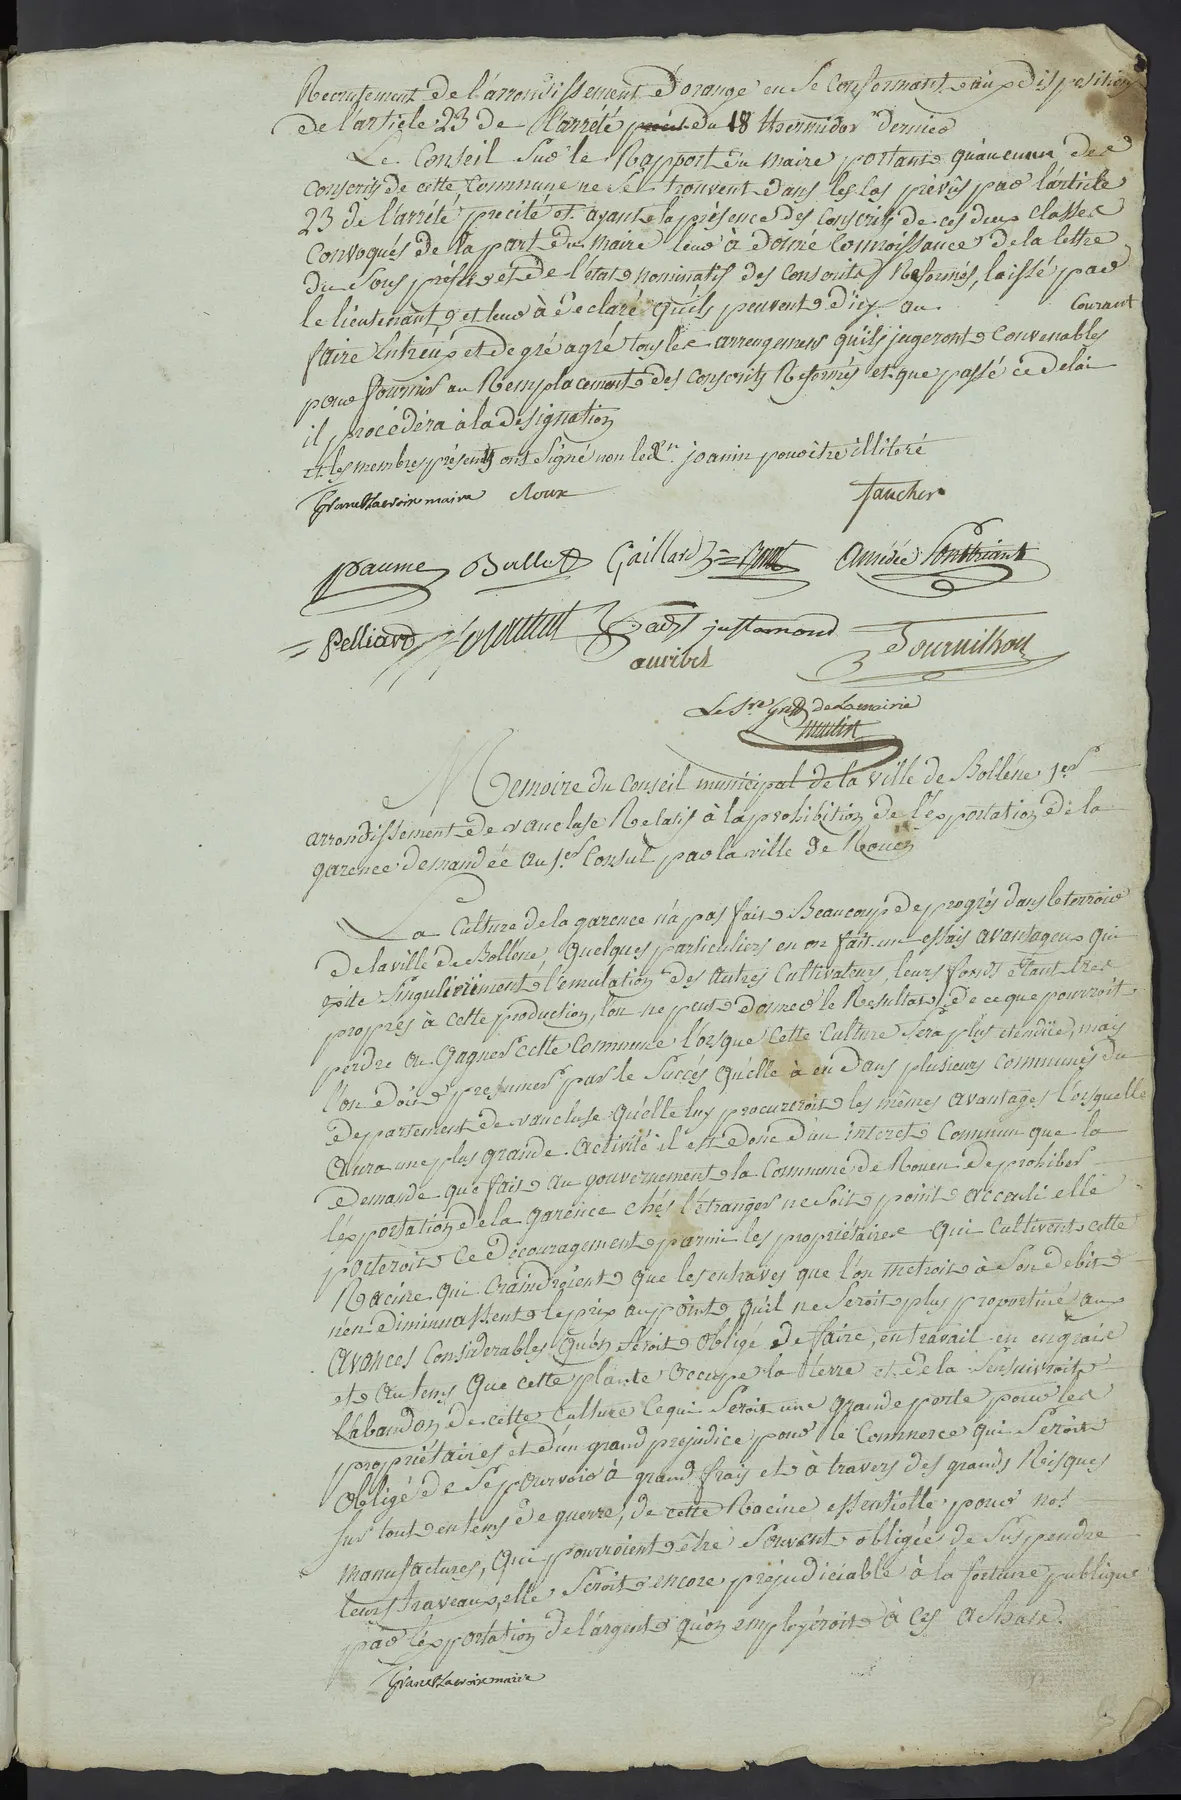 Recrutement de l'arrondissement d'orange en se conformant aux dispositions
de l'article 23 de l'arrété du 18 thermidor dernier
Le Conseil sur le Rapport du maire portant qu'aucun des
conscrits de cette commune ne se trouvent dans les cas prévûs par l'article
23 de l'arrété precité et ayant la présence des conscrits de ces deux classes
Convoqués de la part du maire leur à donné connoissance de la lettre
du sous préfet et de l'état nominatif des conscrits Reformés, laissé par
le lieutenant, et leur à déclaré qu'ils peuvent d'icy au courant
faire entreux et de gré agré tous les arrengemens qu'ils jugeront convenables
pour fournir au Remplacement des conscrits Reformés et que passé ce delai
il procédéra à la désignation
et les membres présents ont signé non led. sr. joanin pour être illitéré
francklacroix maire cloux faucher
paume Bullet Gaillard amédée Pontbriant
Pelliard justamond
auribel Tournilhon
Le Sre. greff de la mairie
Memoire du Conseil municipal de la ville de Bolléne 1er
arrondissement de vaucluse Relatif à la prohibition de l'exportation de la
garence demandée au 1er Consul par la ville de Rouen
La Culture de la garence n'a pas fait Beaucoup de progrés dans le terroir
de la ville de Bolléne, quelques particuliers en on fait un essais avantageux qui
exite singuliérement l'émulation des autres cultivateurs, leurs fonds étant tres
propres à cette production, l'on ne peut donner le Resultat de ce que pourroit
perdre ou gagner cette commune l'orsque cette culture sera plus étendüe, mais
l'on doit presumer par le succés qu'elle à eu dans plusieurs communes du
departement de vaucluse qu'elle luy procureroit les mêmes avantages l'orsquelle
aura une plus grande activité il est donc d'un interet commun que la
demande que fait au gouvernement la commune de Rouen de prohiber
l'éxportation de la garence chés l'étranger ne soit point accculi elle
porteroit le decouragement parmi les propriétaires qui cultivent cette
Racine qui craindroient que les entraves que l'on metroit à son debit
n'en diminuassent le prix au point qu'il ne seroit plus proportiné aux
avances considerables qu'on seroit obligé de faire, en travail en engrais
et au tems que cette plante occupe la terre et de la sensuivroit
l'abandon de cette culture ce qui seroit une grande perte pour les
propriétaires et d'un grand prejudice pour le commerce qui seroit
obligé de se pourvoir à grand frais et à travers des grands Risques
sur tout en tems de guerre, de cette Racine essentielle pour nos
manufactures, qui pourroient être souvent obligée de suspendre
leurs traveaux, elle seroit encore prejudiciable à la fortune publique
par l'éxportation de l'argent qu'on employéroit à ces achats.
francklacroix maire